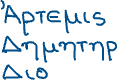 Ἀρτεμις
Δημητηρ
Διο